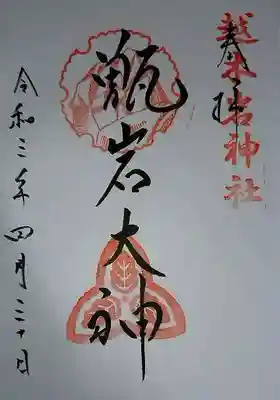 奉拝
越木岩神社
甑岩大神
令和三年四月三十日